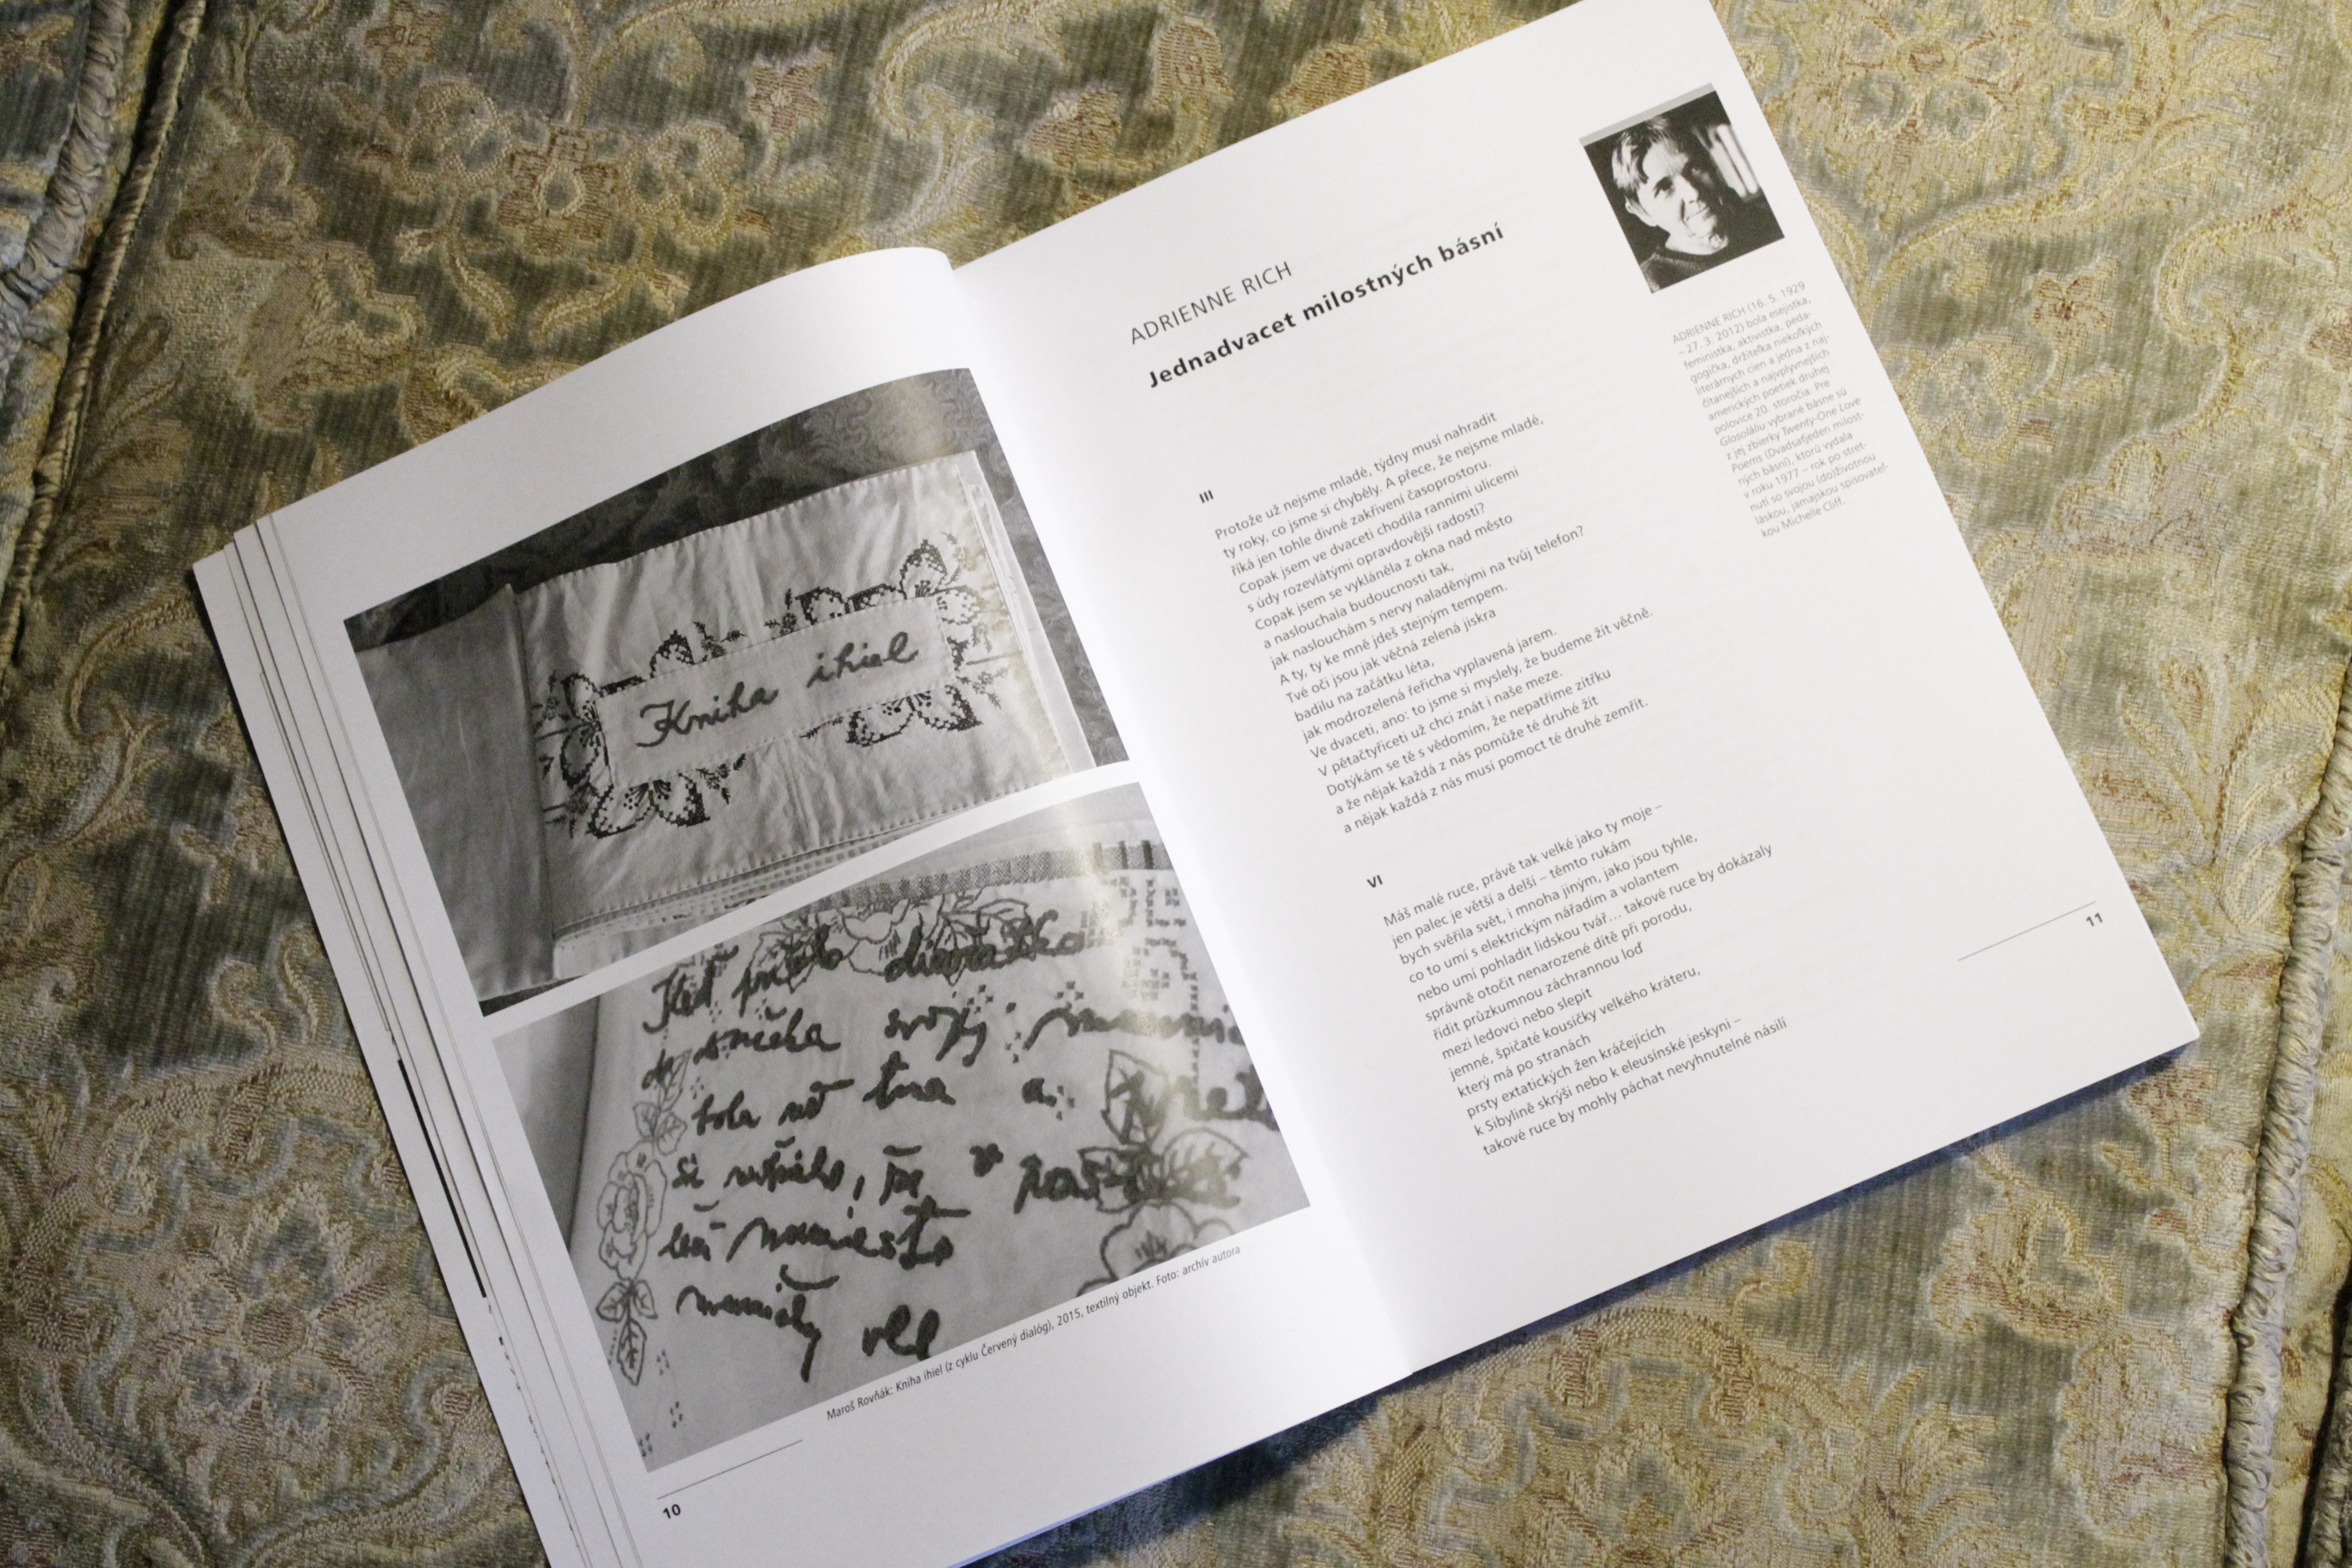 Kniha ihiel
Keď prišlo dievčatko
do srdca svojej
bola už tma a
si že v
miesto
Maroš Rovňák: Kniha ihiel (z cyklu Červený dialóg), 2015, textilný objekt. Foto: archív autora
10
ADRIENNE RICH
Jednadvacet milostných básní
III
Protože už nejsme mladé, týdny musí nahradit
ty roky, co jsme si chyběly. A přece, že nejsme mladé,
říká jen tohle divné zakřivení časoprostoru.
Copak jsem ve dvaceti chodila ranními ulicemi
s údy rozevlátými opravdovější radostí?
Copak jsem se vykláněla z okna nad město
a naslouchala budoucnosti tak,
jak naslouchám s nervy naladěnými na tvůj telefon?
A ty, ty ke mně jdeš stejným tempem.
Tvé oči jsou jak věčná zelená jiskra
badilu na začátku léta,
jak modrozelená řeřicha vyplavená jarem.
Ve dvaceti, ano: to jsme si myslely, že budeme žít věčně.
V pětačtyřiceti už chci znát i naše meze.
Dotýkám se tě s vědomím, že nepatříme zítřku
a že nějak každá z nás pomůže té druhé žít
a nějak každá z nás musí pomoct té druhé zemřít.
VI
Máš malé ruce, právě tak velké jako ty moje –
jen palec je větší a delší – těmto rukám
bych svěřila svět, i mnoha jiným, jako jsou tyhle,
co to umí s elektrickým nářadím a volantem
nebo umí pohladit lidskou tvář... takové ruce by dokázaly
správně otočit nenarozené dítě při porodu,
řídit průzkumnou záchrannou loď
mezi ledovci nebo slepit
jemné, špičaté kousíčky velkého kráteru,
který má po stranách
prsty extatických žen kráčejících
k Sibylině skrýši nebo k eleusínské jeskyni –
takové ruce by mohly páchat nevyhnutelné násilí
ADRIENNE RICH (16. 5. 1929
– 27. 3. 2012) bola esejistka,
feministka, aktivistka, peda-
gogička, držiteľka niekoľkých
literárnych cien a jedna z naj-
čítanejších a najvplyvnejších
amerických poetiek druhej
polovice 20. storočia. Pre
Glosoláliu vybrané básne sú
z jej zbierky Twenty-One Love
Poems (Dvadsaťjeden milost-
ných básní), ktorú vydala
v roku 1977 – rok po stret-
nutí so svojou (do)životnou
láskou, jamajskou spisovateľ-
kou Michelle Cliff.
11